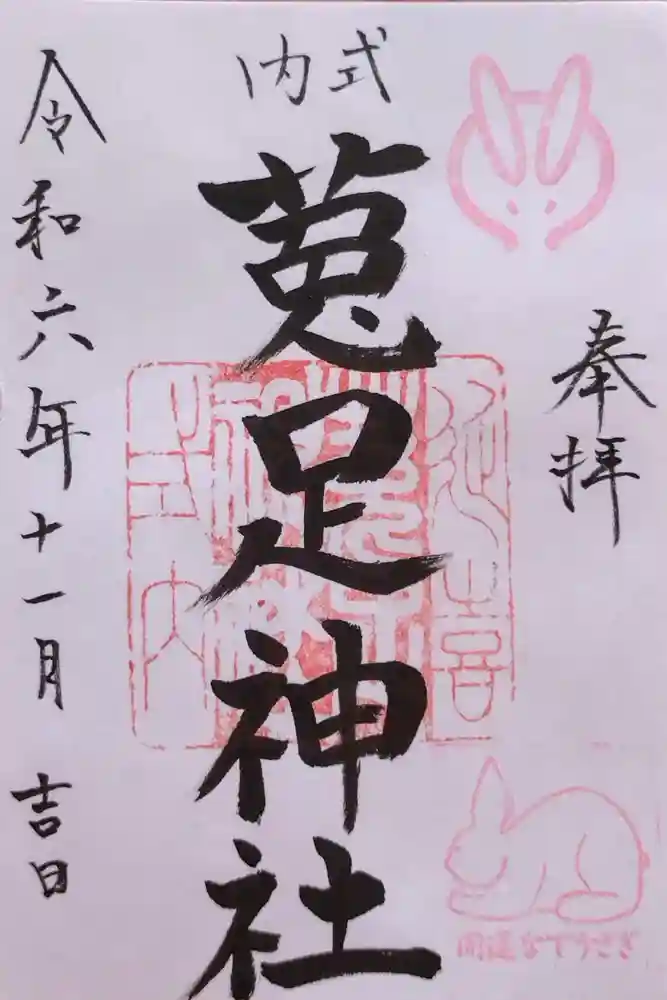 奉拝
式内
菟足神社
令和六年十一月吉日
延喜
式内
開運なでうさぎ